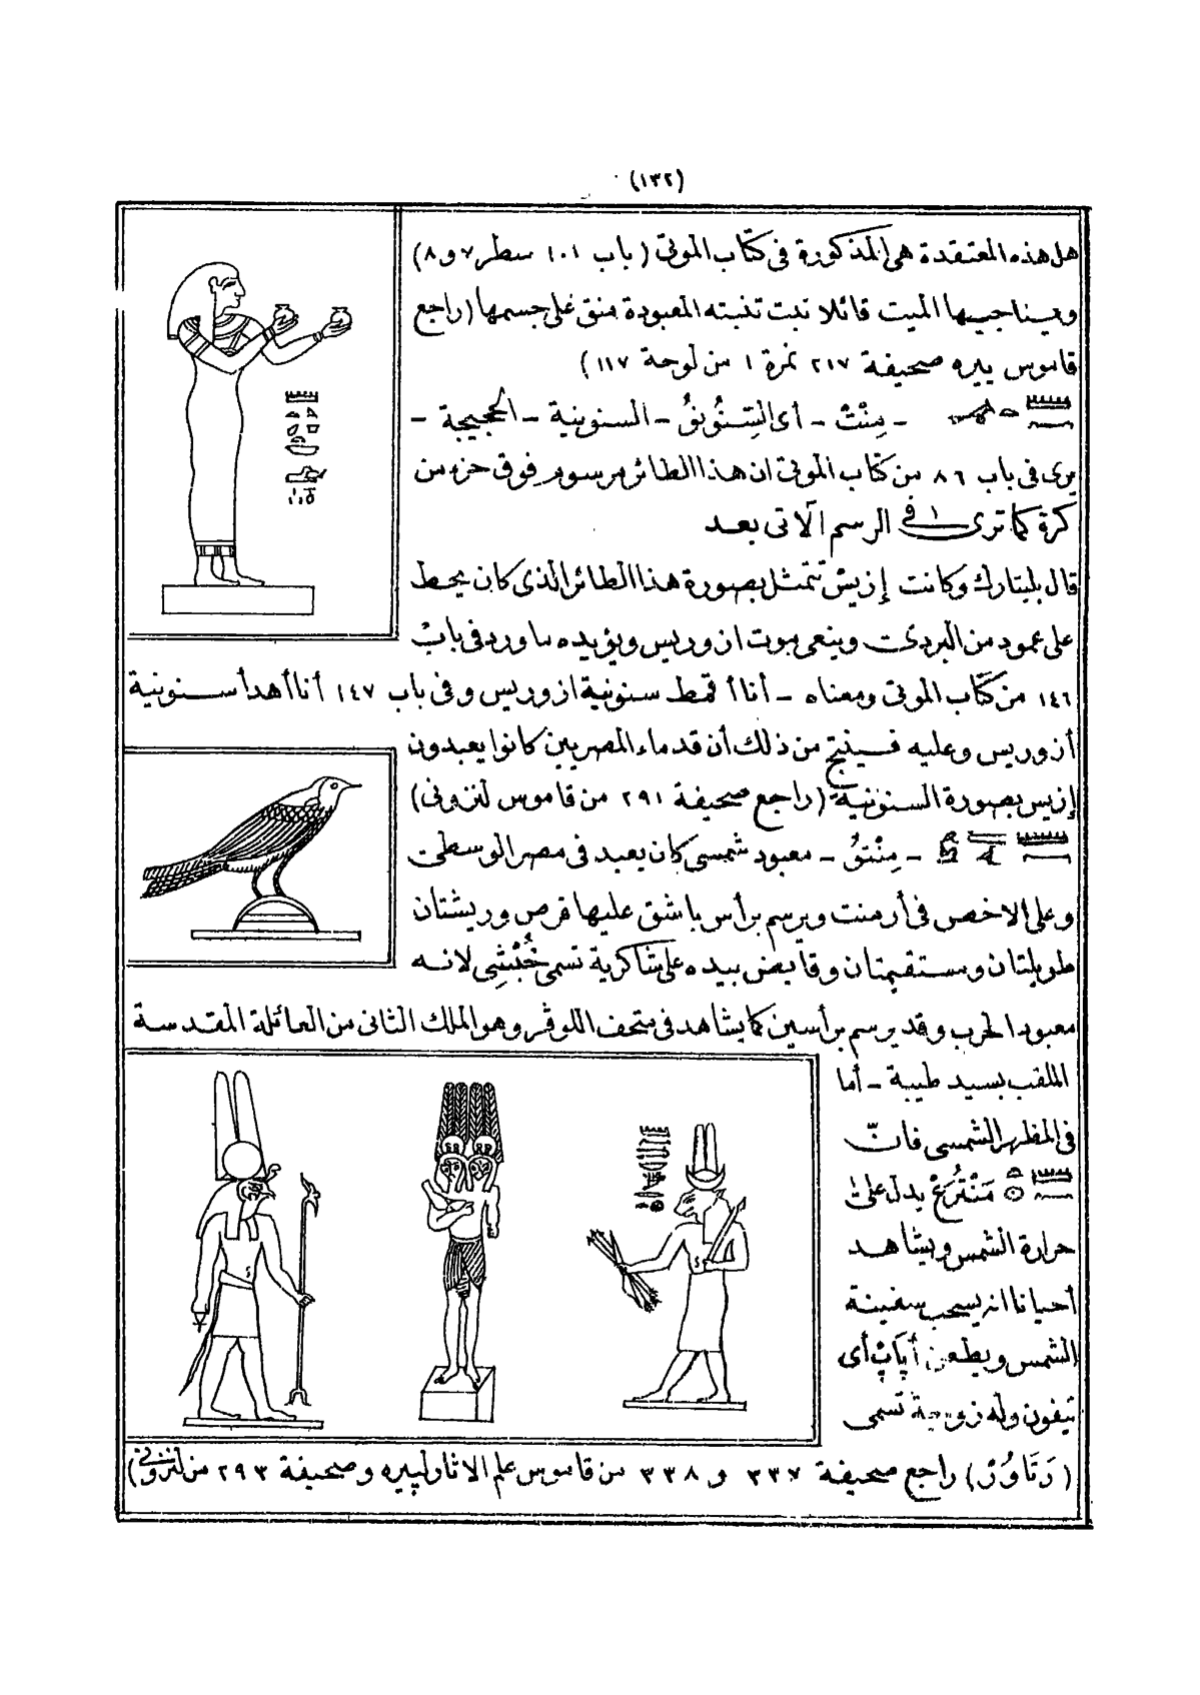 (١٣٢)
هل هذه المعتقدة هي المذكورة فى كتاب الموتى (باب ١٠١ سطر ٧ و ٨)
الميت قائلا تبت تنبته المعبودة منق على جسمها (راجع
قاموس بيره صحيفة ٢١٧ نمرة ١ من لوحة ١١٧)
- مِنْتْ - أى - السنونية - الحجيجة -
يرى فى باب ٨٦ من كتاب الموتى ان هذا الطائر مرسوم فوق جزء من
كرة كما ترى فى الرسم الآتى بعد
قال بليتارك وكانت إزيس تتمثل بصورة هذا الطائر الذى كان يحط
على عمود من البردى وينعى موت ازوريس ويؤيده ما ورد فى باب
١٤٦ من كتاب الموتى ومعناه - أنا أقمط سنونية ازوريس وفى باب ١٤٧ أنا أهدأ سنونية
أزوريس وعليه فينتج من ذلك أن قدماء المصريين كانوا يعبدون
إزيس بصورة السنونية (راجع صحيفة ٢٩١ من قاموس لنزونى)
- مِنْتُ - معبود شمسى كان يعبد فى مصر الوسطى
وعلى الاخص فى أرمنت ويرسم برأس باشق عليها قرص وريشتان
طويلتان ومستقيمتان وقابض بيده على شاكرية تسمى خُبْشِى لانه
معبود الحرب وقد يرسم برأسين كما يشاهد فى متحف اللوڤر وهو الملك الثانى من العائلة المقدسة
الملقب بسيد طيبة - أما
فى المظهر الشمسى فانّ
مَنْتُرَعْ يدل على
حرارة الشمس ويشاهد
أحيانا انه يسحب سفينة
الشمس ويطعن أپاپ أى
تيفون وله زوجة تسمى
(رَتَاوُىْ) راجع صحيفة ٣٣٧ و ٣٣٨ من قاموس علم الاثار لپيره وصحيفة ٢٩٣ من لنزونى)